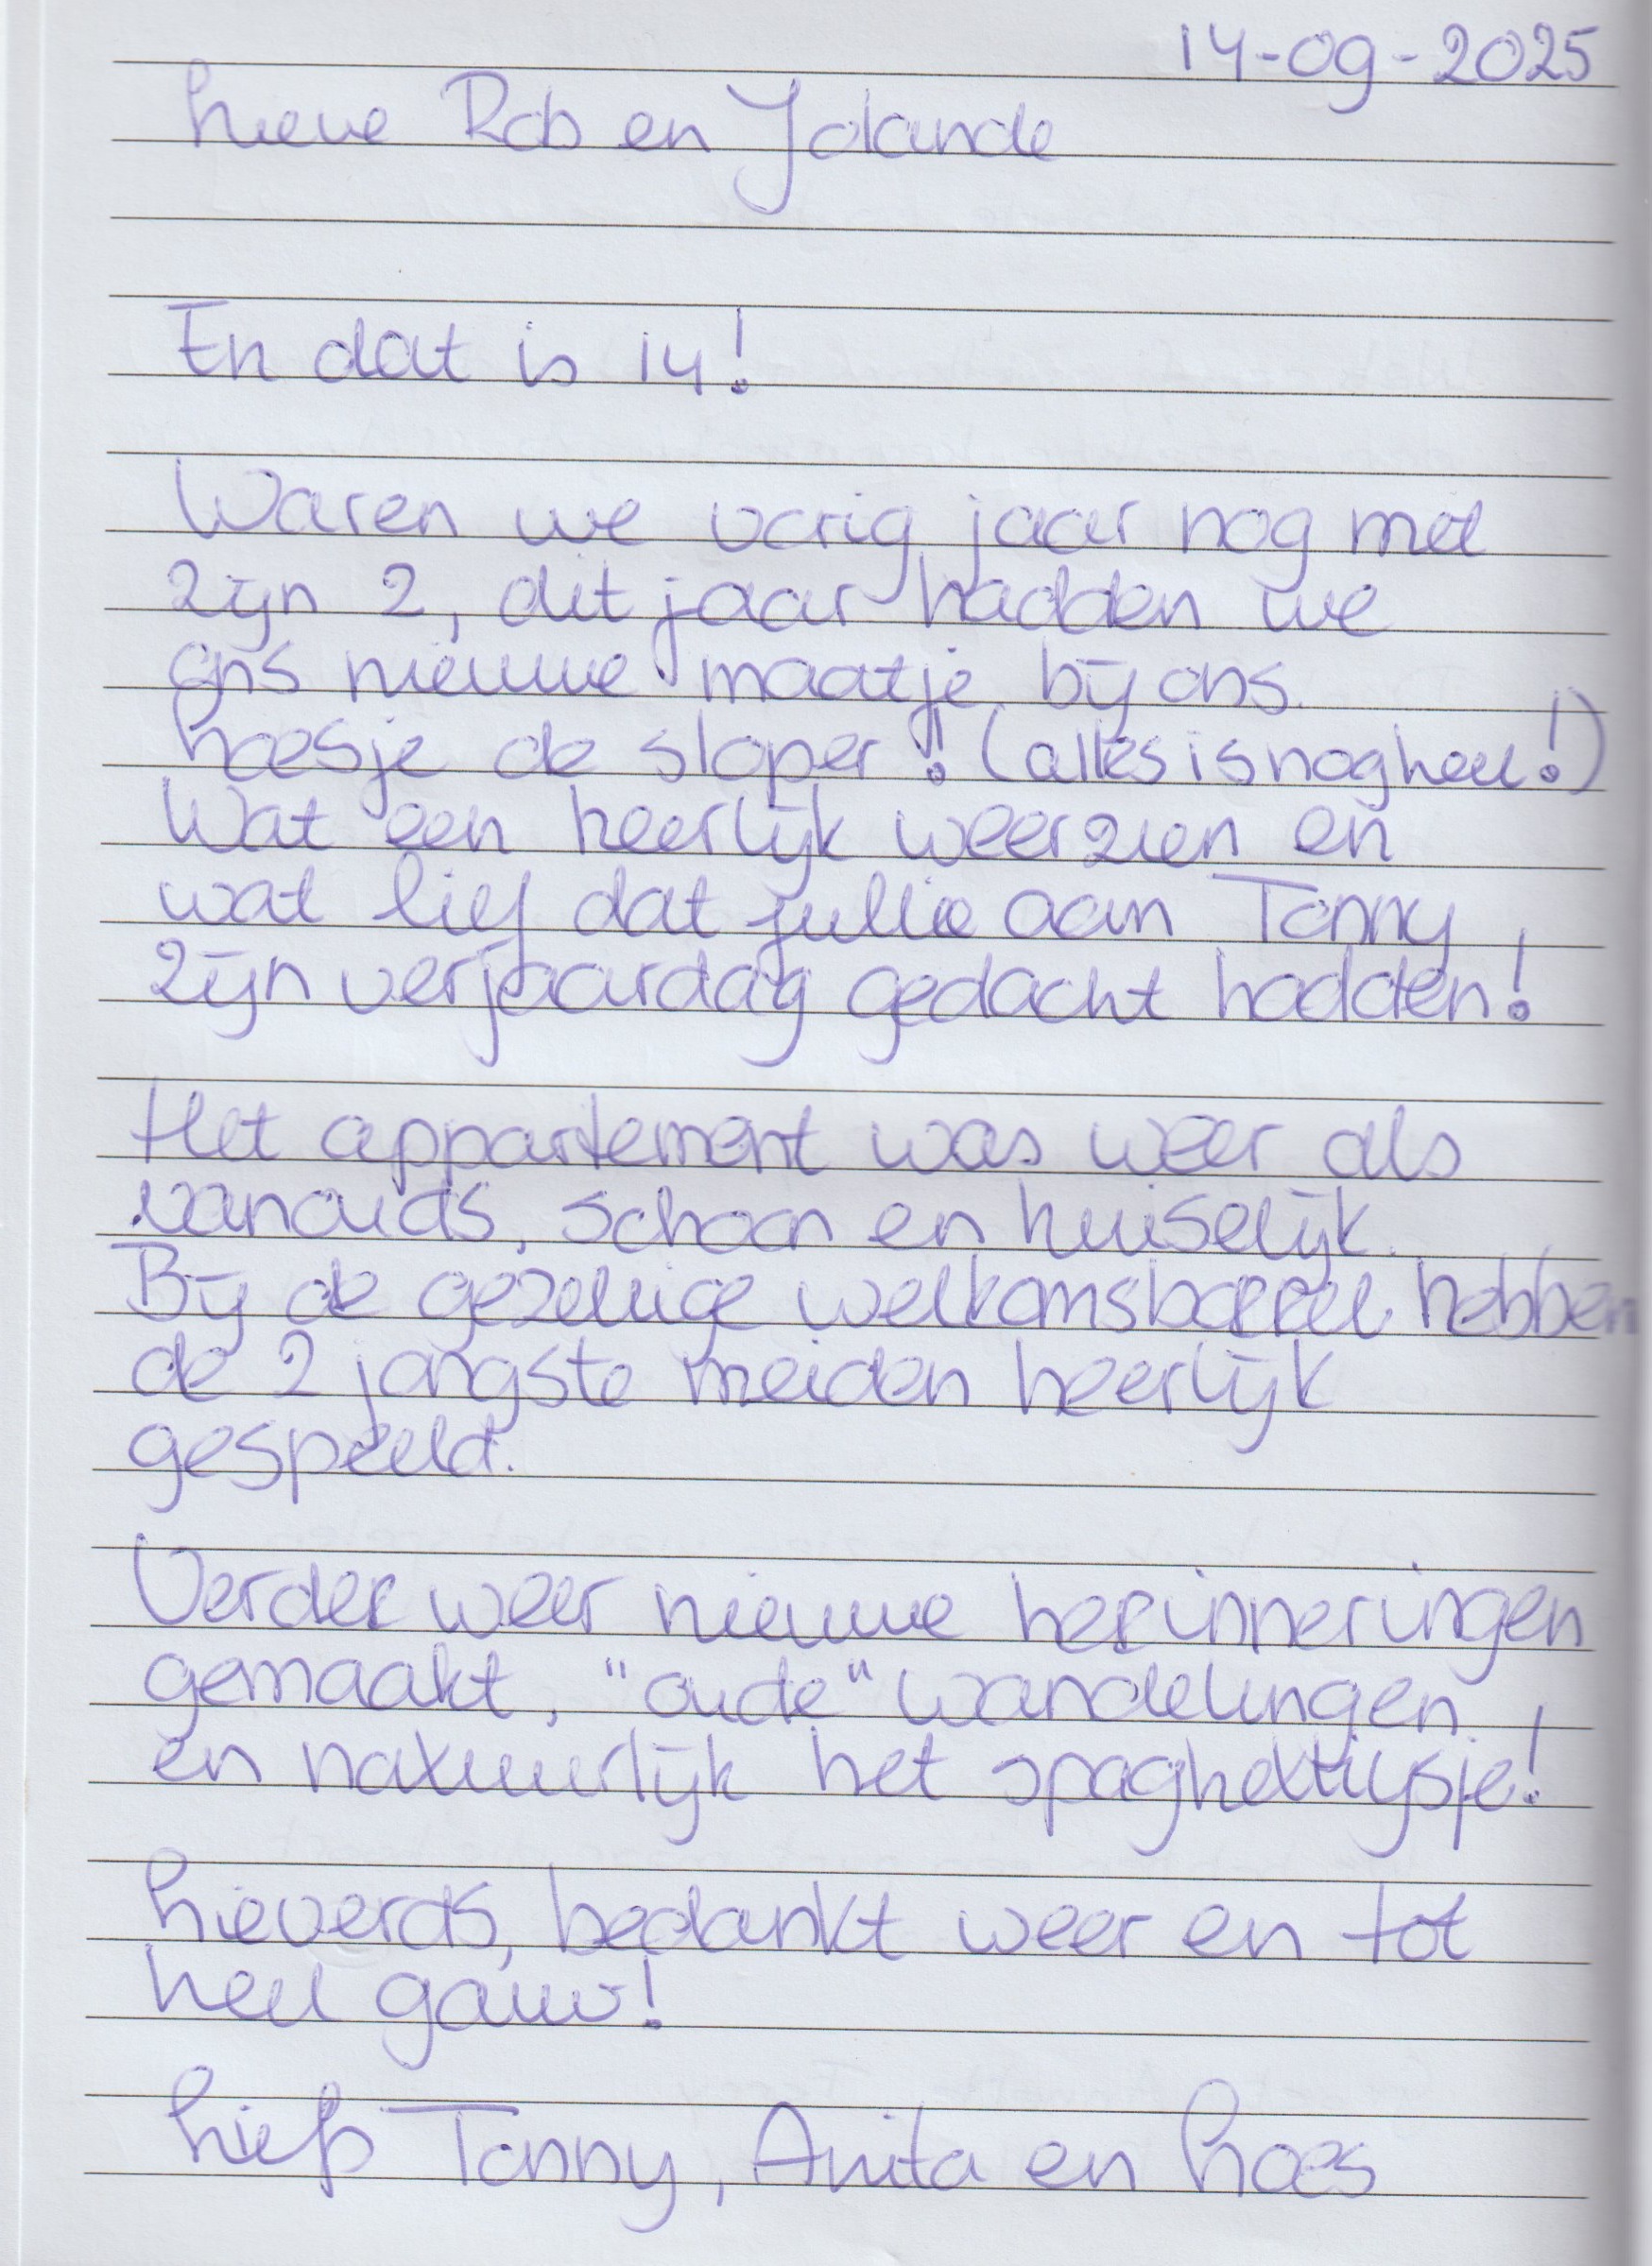 14-09-2025
Lieve Rob en Jolande
En dat is 14!
Waren we vorig jaar nog met
zijn 2, dit jaar hadden we
ons nieuwe maatje bij ons.
Loesje de sloper! (alles is nog heel!)
Wat een heerlijk weerzien en
wat lief dat jullie aan Tonny
zijn verjaardag gedacht hadden!
Het appartement was weer als
vanouds, schoon en huiselijk.
Bij de gezellige welkomsborrel hebben
de 2 jongste meiden heerlijk
gespeeld.
Verder weer nieuwe herinneringen
gemaakt, "oude" wandelingen
en natuurlijk het spaghettiijsje!
Lieverds, bedankt weer en tot
heel gauw!
Liefs Tonny, Anita en Loes